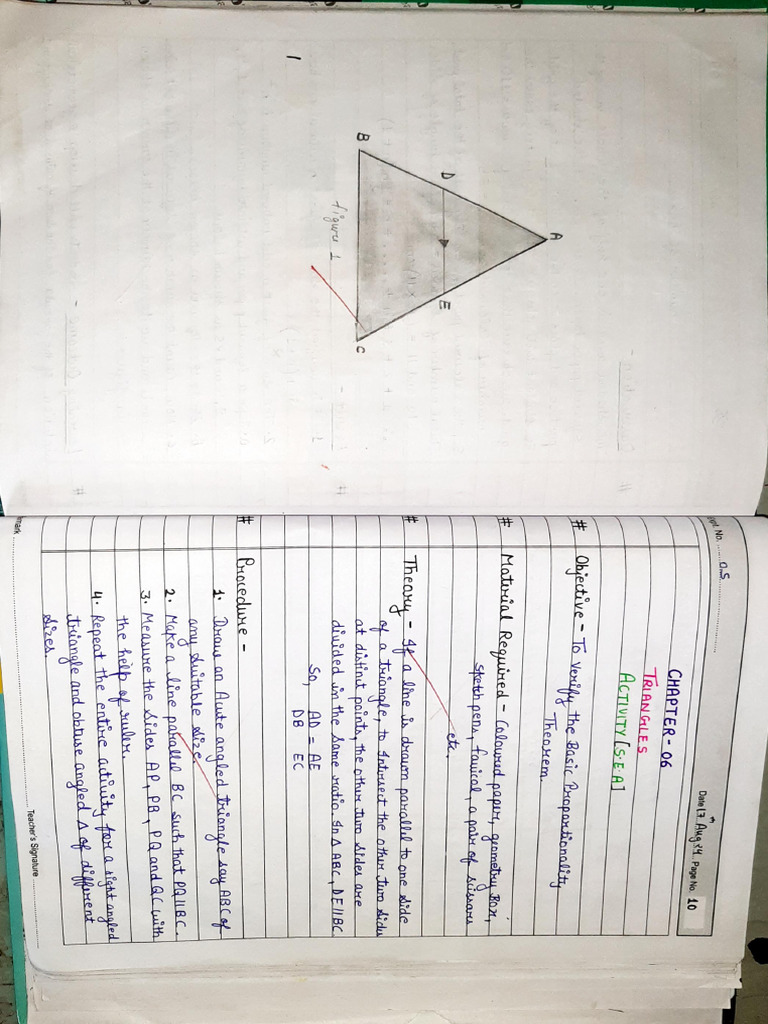 A
D
E
B
C
figure 1
Expt. No. 05
Date 17th Aug 24 Page No. 10
CHAPTER - 06
TRIANGLES
ACTIVITY [S.E.A]
# Objective - To verify the Basic Proportionality
Theorem.
# Material Required - Coloured paper, geometry Box,
sketch pens, favicol, a pair of scissors
etc.
# Theory - If a line is drawn parallel to one side
of a triangle, to intersect the other two sides
at distinct points, the other two sides are
divided in the same ratio. In Δ ABC, DE||BC.
So, AD = AE
DB EC
# Procedure -
1. Draw an Acute angled triangle say ABC of
any suitable size.
2. Make a line parallel BC such that PQ||BC.
3. Measure the sides AP, PB, PQ and QC with
the help of ruler.
4. Repeat the entire activity for a right angled
triangle and obtuse angled Δ of different
sizes.
Teacher's Signature